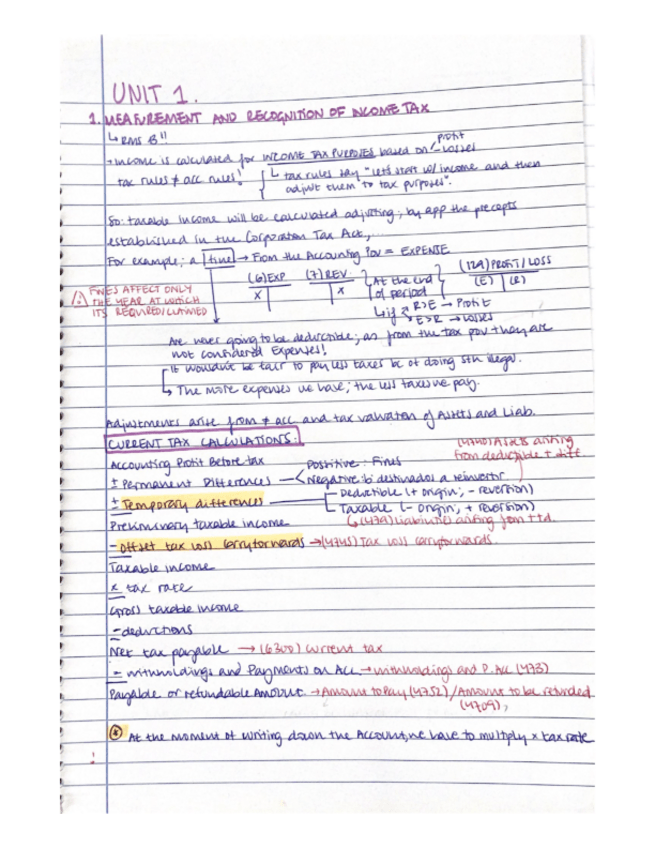 UNIT 1.
1. MEASUREMENT AND RECOGNITION OF INCOME TAX
↳ RMS B!!
→ Income is calculated for INCOME TAX PURPOSES based on profit losses
tax rules ≠ acc rules! ↳ tax rules say "let's start w/ income and then
adjust them to tax purposes".
So: taxable income will be calculated adjusting, by app the precepts
established in the Corporation Tax Act,...
For example; a fine → From the Accounting POV = EXPENSE
(6) EXP (7) REV At the end of period (129) PROFIT / LOSS
X X (E) (R)
⚠ FINES AFFECT ONLY
THE YEAR AT WHICH
ITS REQUIRED/CLAIMED
↳ if R>E → Profit
E>R → Losses
Are never going to be deductible; as from the tax pov they are
not considered Expenses!
It wouldn't be fair to pay less taxes bc of doing sth illegal.
↳ The more expenses we have; the less taxes we pay.
Adjustments arise from ≠ acc and tax valuation of Assets and Liab.
CURRENT TAX CALCULATIONS:
(4740) Assets arising
from deductible t diff.
Accounting Profit Before tax
± Permanent Differences Positive: Fines
Negative: bº destinados a reinvertir
± Temporary differences Deductible (+ origin; - reversion)
Taxable (- origin; + reversion)
Preliminary taxable income ↳ (479) Liabilities arising from t t d.
- offset tax loss carryforwards → (4745) Tax loss carryforwards.
Taxable income
x tax rate
Gross taxable income
- deductions
Net tax payable → (6300) Current tax
- withholdings and Payments on Acc. → withholdings and P. Acc (473)
Payable or refundable Amount → Amount to Pay (4752) / Amount to be refunded
(4709),
* At the moment of writing down the Account, we have to multiply x tax rate
!